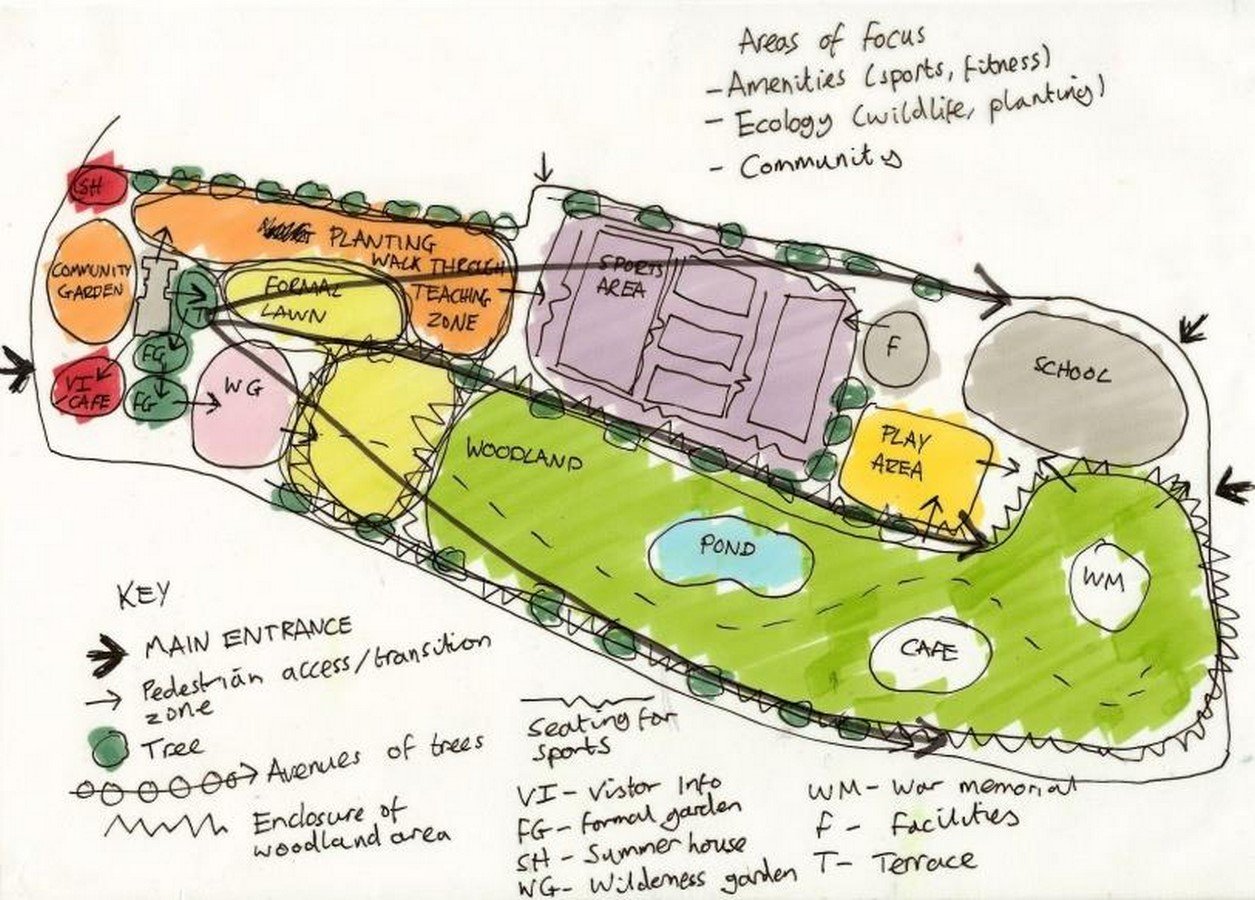 Areas of focus
- Amenities (sports, fitness)
- Ecology (wildlife, planting)
- Community
SH
PLANTING
WALK THROUGH
TEACHING
ZONE
COMMUNITY
GARDEN
FORMAL
LAWN
T
FG
VI
/CAFE
FG
WG
SPORTS
AREA
F
SCHOOL
PLAY
AREA
WOODLAND
POND
WM
CAFE
KEY
MAIN ENTRANCE
Pedestrian access/transition
zone
Tree
Avenues of trees
Enclosure of
woodland area
Seating for
sports
VI - Vistor Info
FG - formal garden
SH - Summer house
WG - Wilderness garden
WM - War memorial
F - Facilities
T - Terrace